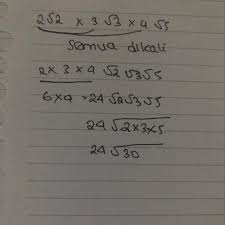 2√2 × 3√3 × 4√5
semua dikali
2 × 3 × 4 √2 √3 √5
6 × 4 = 24 √2 √3 √5
24 √2×3×5
24 √30